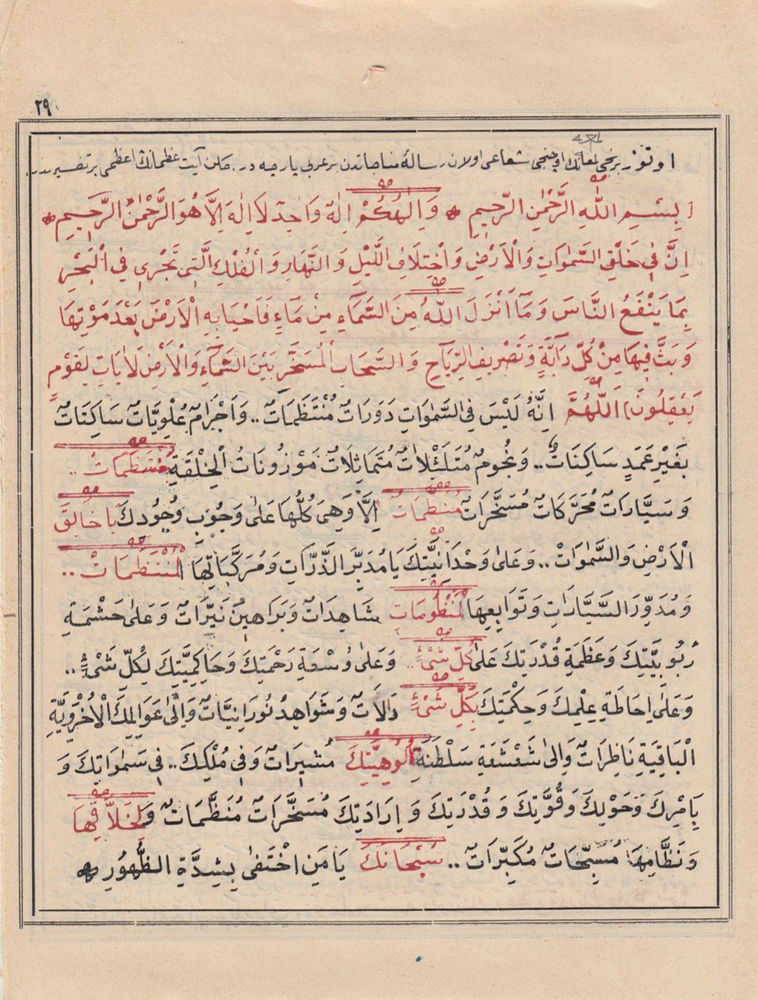 ٢٩
اوتوز برنجی لمعانك اوچنجی شعاعی اولان رسالهٔ مناجاتدن بر عربی پارچه در. آیت عظمانك اعظمی بر تفسیریدر.
﴿بِسْمِ اللّٰهِ الرَّحْمٰنِ الرَّحِيمِ * وَاِلٰهُكُمْ اِلٰهٌ وَاحِدٌ لَا اِلٰهَ اِلَّا هُوَ الرَّحْمٰنُ الرَّحِيمُ *
اِنَّ فِى خَلْقِ السَّمٰوَاتِ وَالْاَرْضِ وَاخْتِلَافِ اللَّيْلِ وَالنَّهَارِ وَالْفُلْكِ الَّتِى تَجْرِى فِى الْبَحْرِ
بِمَا يَنْفَعُ النَّاسَ وَمَا اَنْزَلَ اللّٰهُ مِنَ السَّمَاءِ مِنْ مَاءٍ فَاَحْيَا بِهِ الْاَرْضَ بَعْدَ مَوْتِهَا
وَبَثَّ فِيهَا مِنْ كُلِّ دَابَّةٍ وَتَصْرِيفِ الرِّيَاحِ وَالسَّحَابِ الْمُسَخَّرِ بَيْنَ السَّمَاءِ وَالْاَرْضِ لَاٰيَاتٍ لِقَوْمٍ
يَعْقِلُونَ﴾ اَللّٰهُمَّ اِنَّهُ لَيْسَ فِى السَّمٰوَاتِ دَوَرَاتٌ مُنْتَظَمَاتٌ.. وَاَجْرَامٌ عُلْوِيَّاتٌ سَاكِتَاتٌ
بِغَيْرِ عَمَدٍ سَاكِنَاتٌ.. وَنُجُومٌ مُتَلَئْلِاٰتٌ مُتَمَاثِلَاتٌ مَوْزُونَاتُ الْخِلْقَةِ مُنْتَظَمَاتٌ..
وَسَيَّارَاتٌ مُحَرَّكَاتٌ مُسَخَّرَاتٌ مُنْتَظَمَاتٌ اِلَّا وَهِىَ كُلُّهَا عَلٰى وُجُوبِ وُجُودِكَ يَا خَالِقَ
الْاَرْضِ وَالسَّمٰوَاتِ.. وَعَلٰى وَحْدَانِيَّتِكَ يَا مُدَبِّرَ الذَّرَّاتِ وَمُرَكَّبَاتِهَا الْمُنْتَظَمَاتِ..
وَمُدَوِّرَ السَّيَّارَاتِ وَتَوَابِعِهَا الْمَنْظُومَاتِ شَاهِدَاتٌ وَبَرَاهِينُ نَيِّرَاتٌ وَعَلٰى حَشْمَةِ
رُبُوبِيَّتِكَ وَعَظَمَةِ قُدْرَتِكَ عَلٰى كُلِّ شَىْءٍ.. وَعَلٰى وُسْعَةِ رَحْمَتِكَ وَحَاكِمِيَّتِكَ لِكُلِّ شَىْءٍ..
وَعَلٰى اِحَاطَةِ عِلْمِكَ وَحِكْمَتِكَ بِكُلِّ شَىْءٍ دَالَّاتٌ وَشَوَاهِدُ نُورَانِيَّاتٌ وَاِلٰى عَوَالِمِكَ الْاُخْرَوِيَّةِ
الْبَاقِيَةِ نَاظِرَاتٌ وَاِلٰى شَعْشَعَةِ سَلْطَنَةِ اُلُوهِيَّتِكَ مُشِيرَاتٌ وَفِى مُلْكِكَ.. فِى سَمٰوَاتِكَ وَ
بِاَمْرِكَ وَحَوْلِكَ وَقُوَّتِكَ وَقُدْرَتِكَ وَاِرَادَتِكَ مُسَخَّرَاتٌ مُنَظَّمَاتٌ وَلِخَلَّاقِهَا
وَنَظَّامِهَا مُسَبِّحَاتٌ مُكَبِّرَاتٌ.. سُبْحَانَكَ يَا مَنِ اخْتَفٰى بِشِدَّةِ الظُّهُورِ *